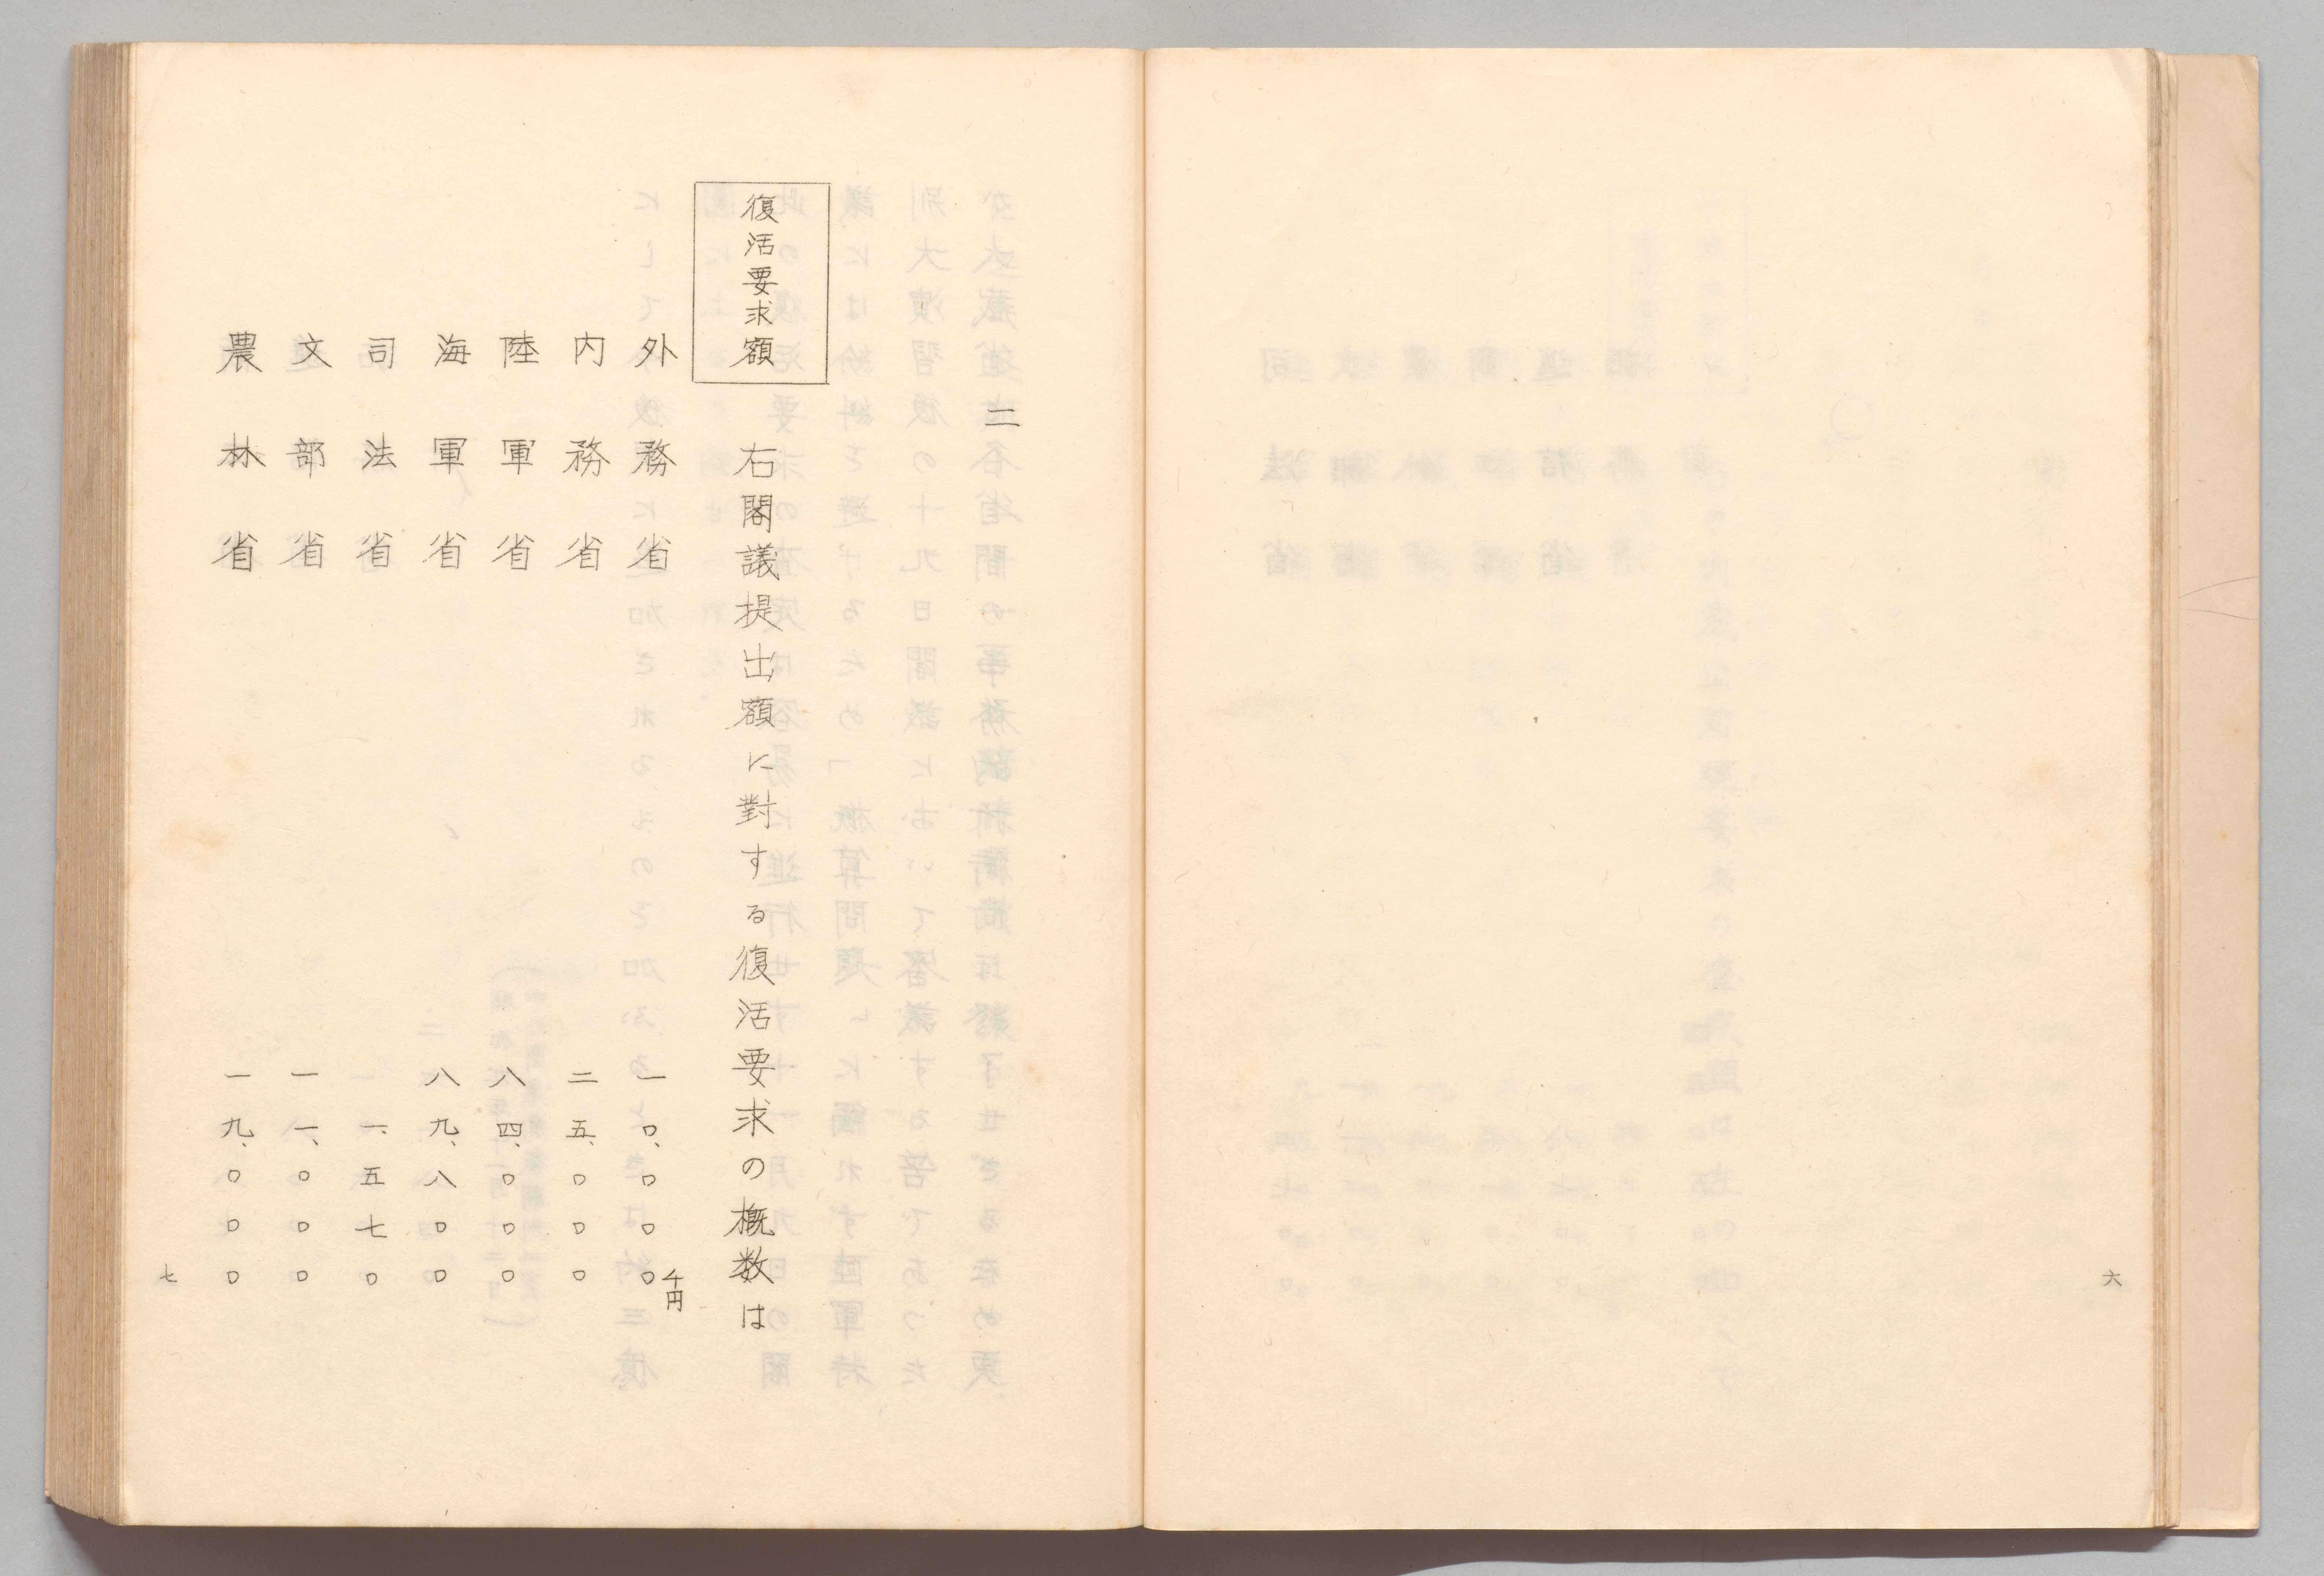 六
二
復活要求額
右閣議提出額に對する復活要求の概数は
外務省 一〇、〇〇〇千円
内務省 二五、〇〇〇
陸軍省 八四、〇〇〇
海軍省 八九、八〇〇
司法省 一、五七〇
文部省 一一、〇〇〇
農林省 一九、〇〇〇
七